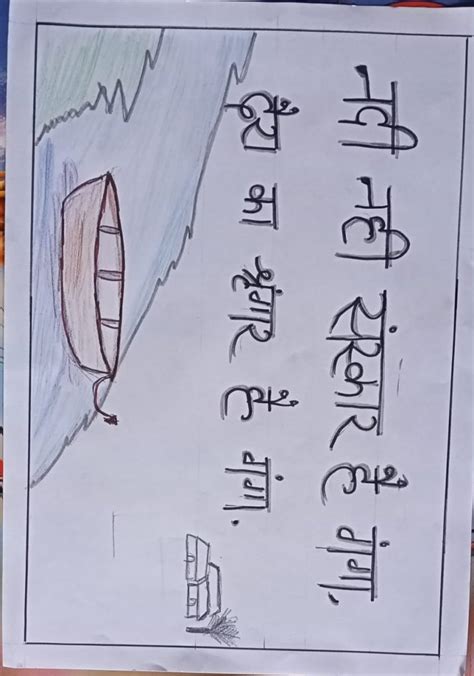 नदी नही संस्कार है गंगा,
देश का श्रृंगार है गंगा.